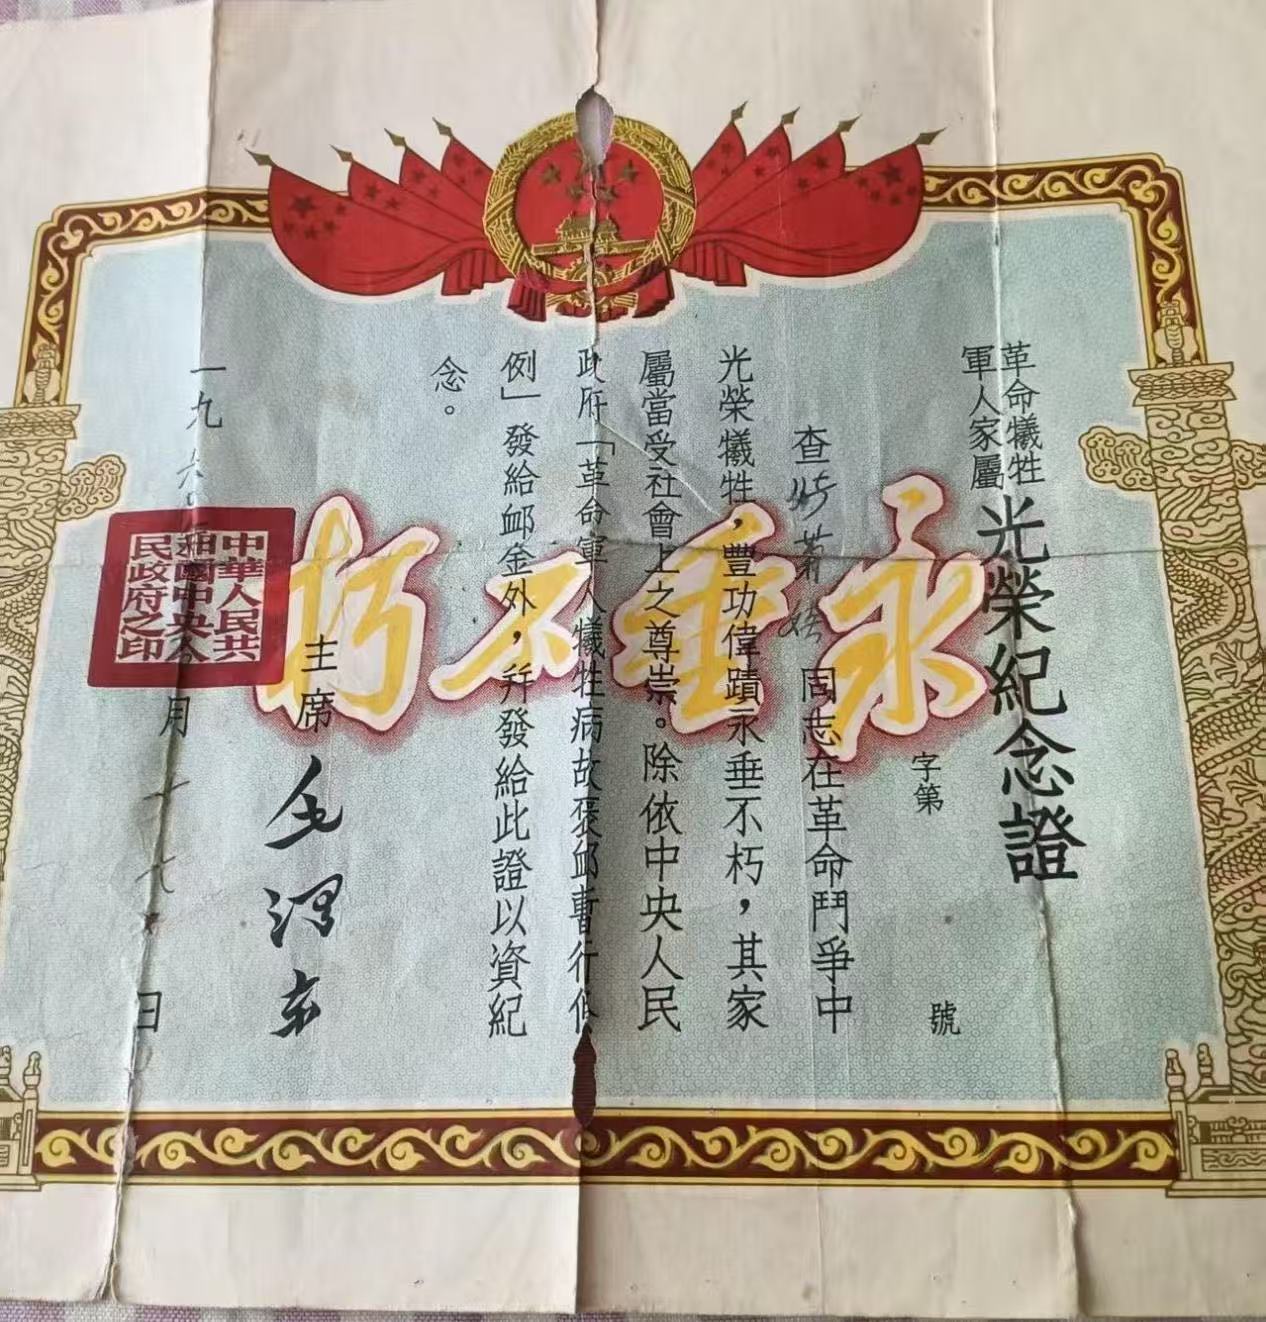 革命犧牲
軍人家屬
光榮紀念證
字第 號
查 同志在革命鬥爭中
光榮犧牲，豐功偉蹟永垂不朽，其家
屬當受社會上之尊崇。除依中央人民
政府「革命軍人犧牲病故褒卹暫行條
例」發給卹金外，幷發給此證以資紀
念。
主席 毛澤東
一九六〇 月十七日
永垂不朽
中華人民共
和國中央人
民政府之印